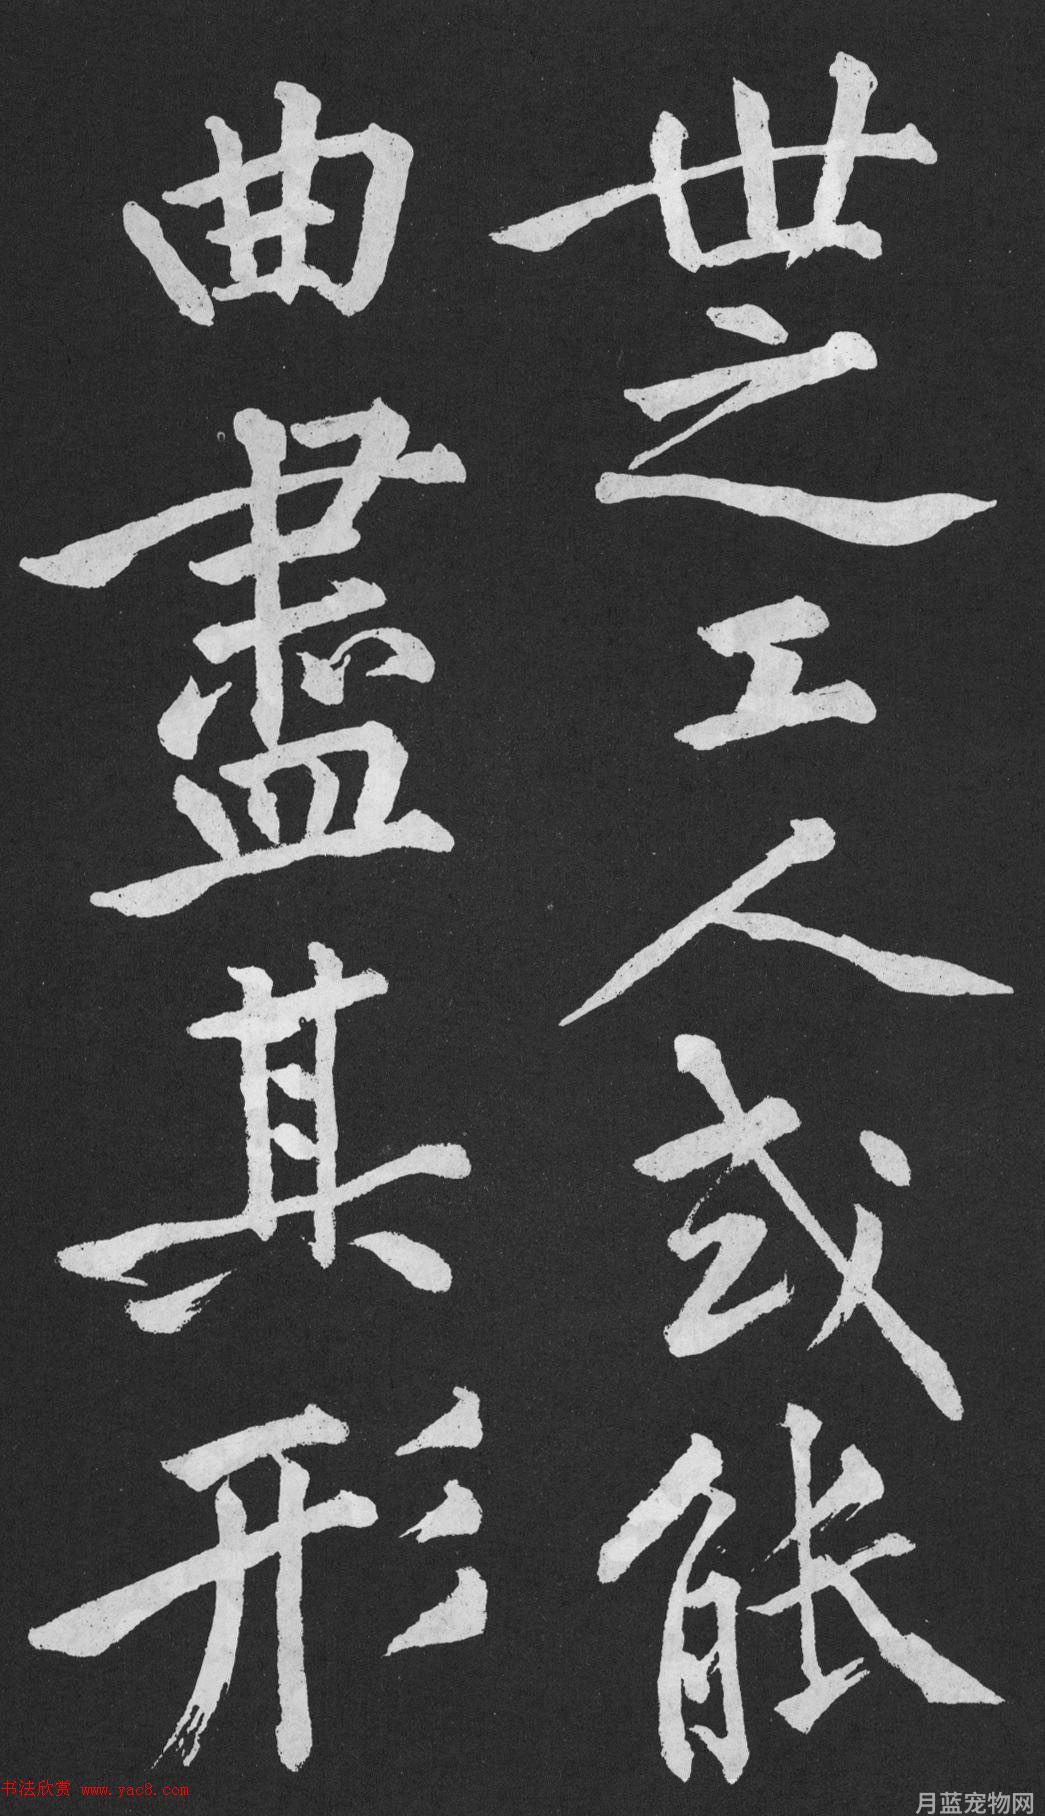 世之工人或能
曲盡其形
书法欣赏 www.yac8.com
月蓝宠物网